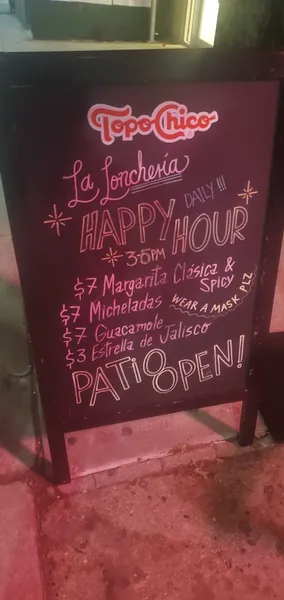 Topo Chico
La Lonchería
DAILY!!!
HAPPY HOUR
3-5PM
$7 Margarita Clásica & Spicy
$7 Micheladas
WEAR A MASK PLZ
$7 Guacamole
$3 Estrella de Jalisco
PATIO OPEN!